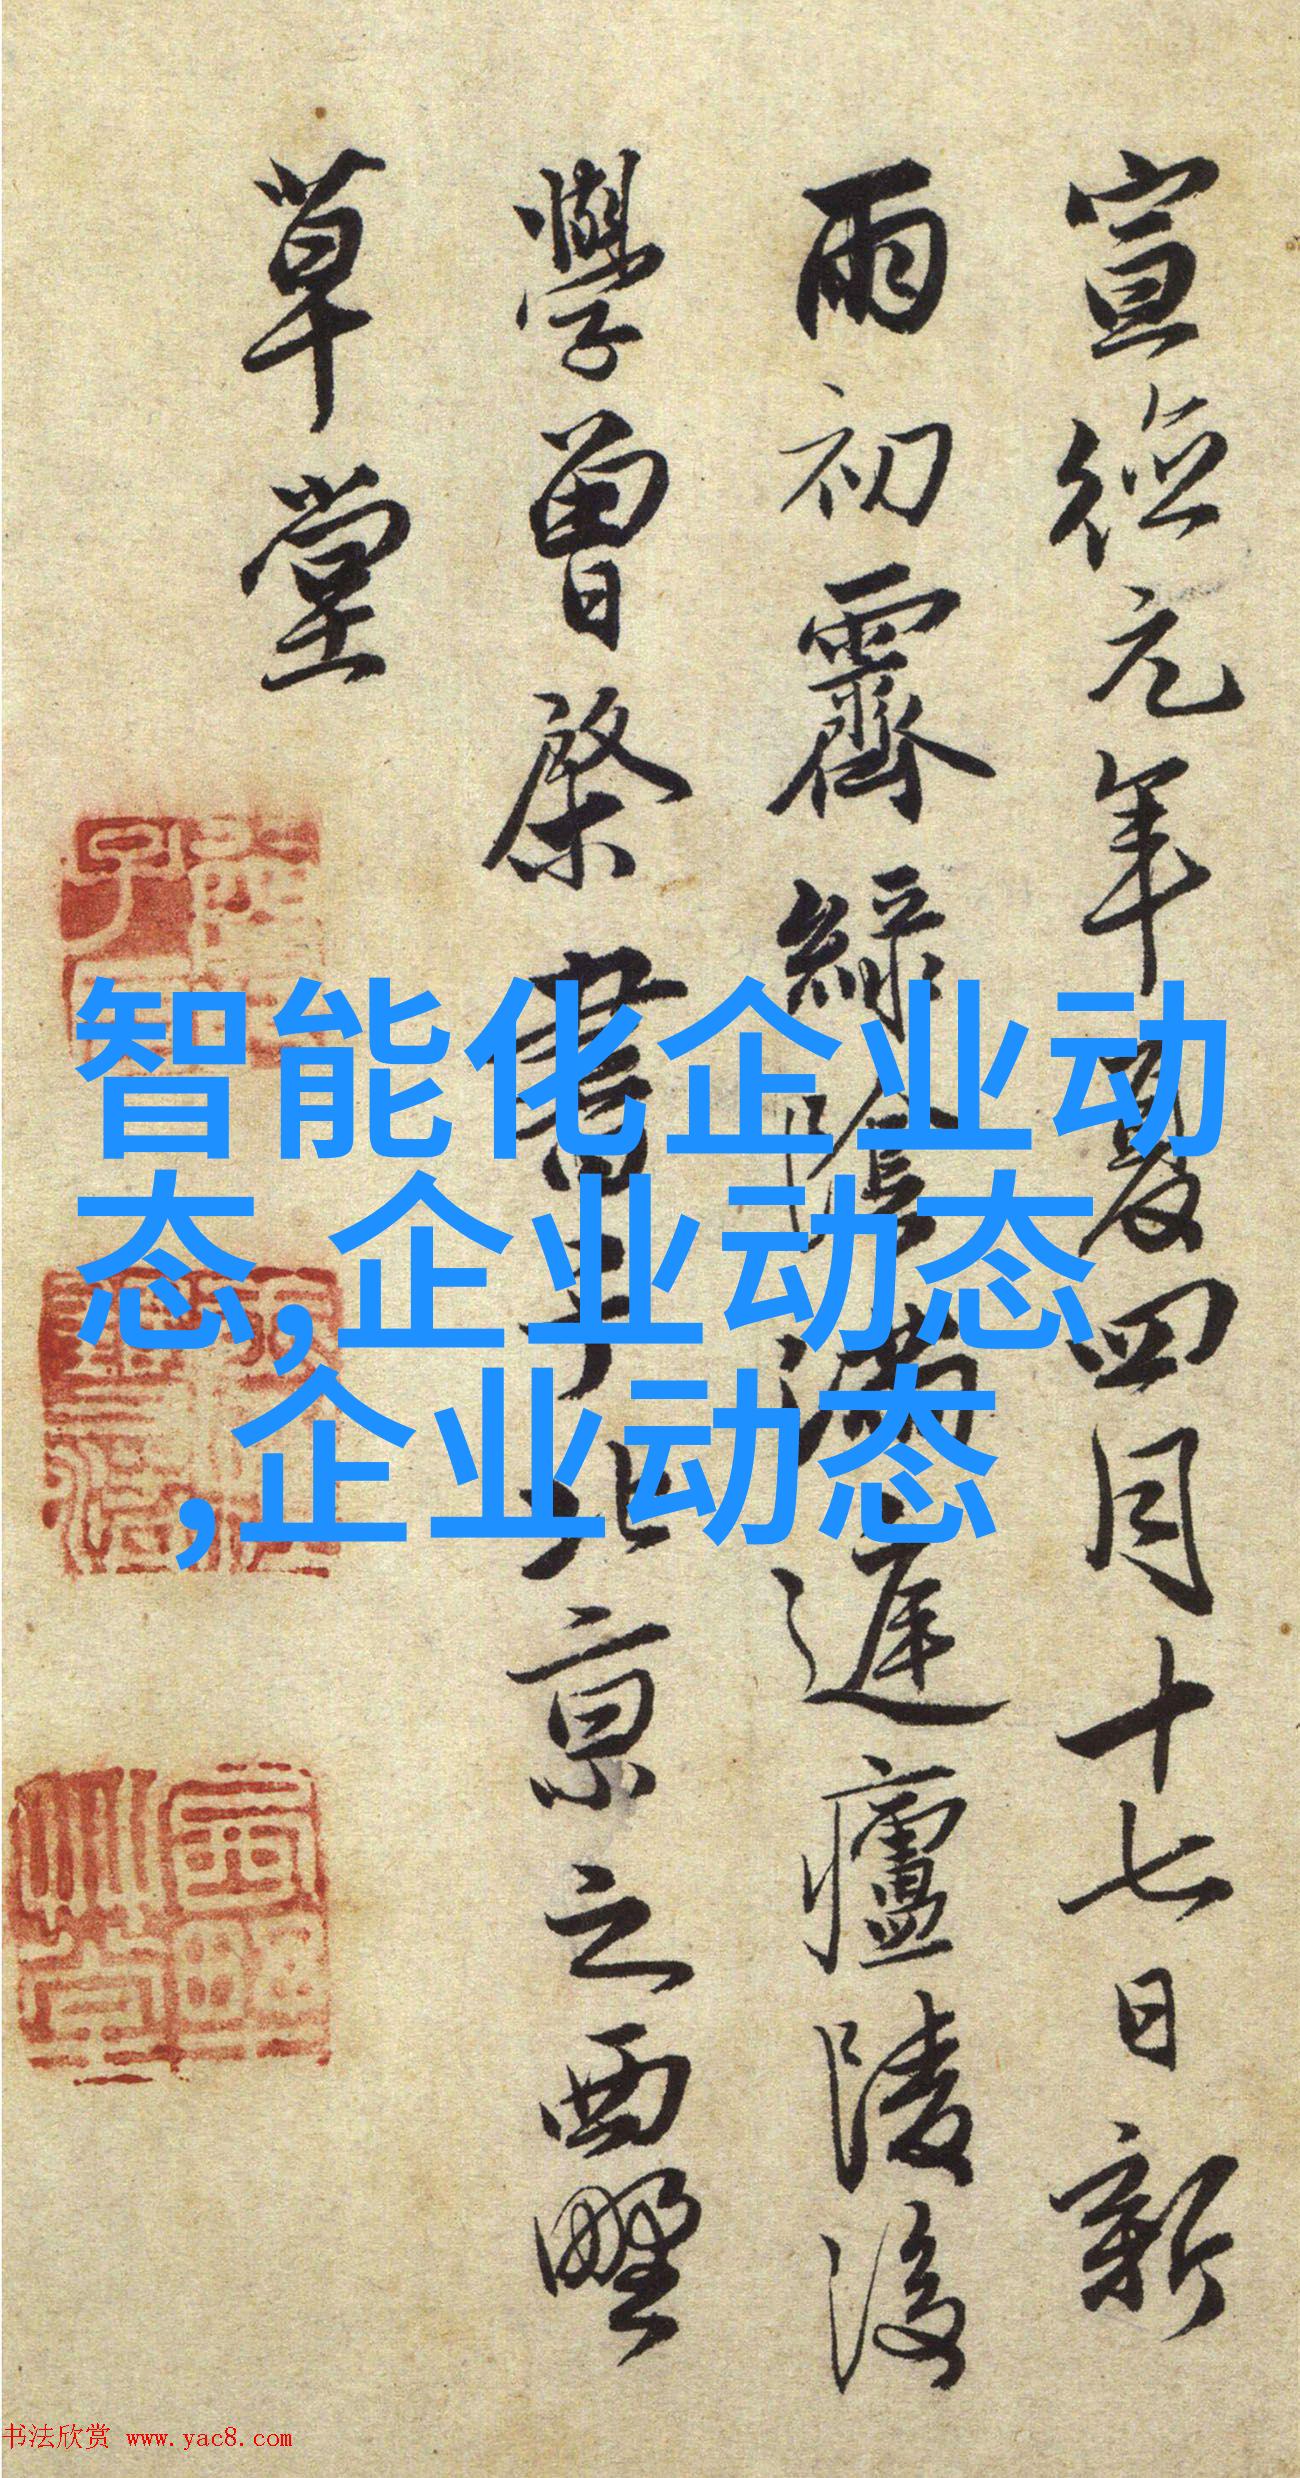 宣德元年夏四月十七日新
雨初霽綠陰滿庭廬陵後
學曾棨書于北京之西墅
草堂
智能化企业动
态,企业动态
,企业动态
书法欣赏 www.yac8.com